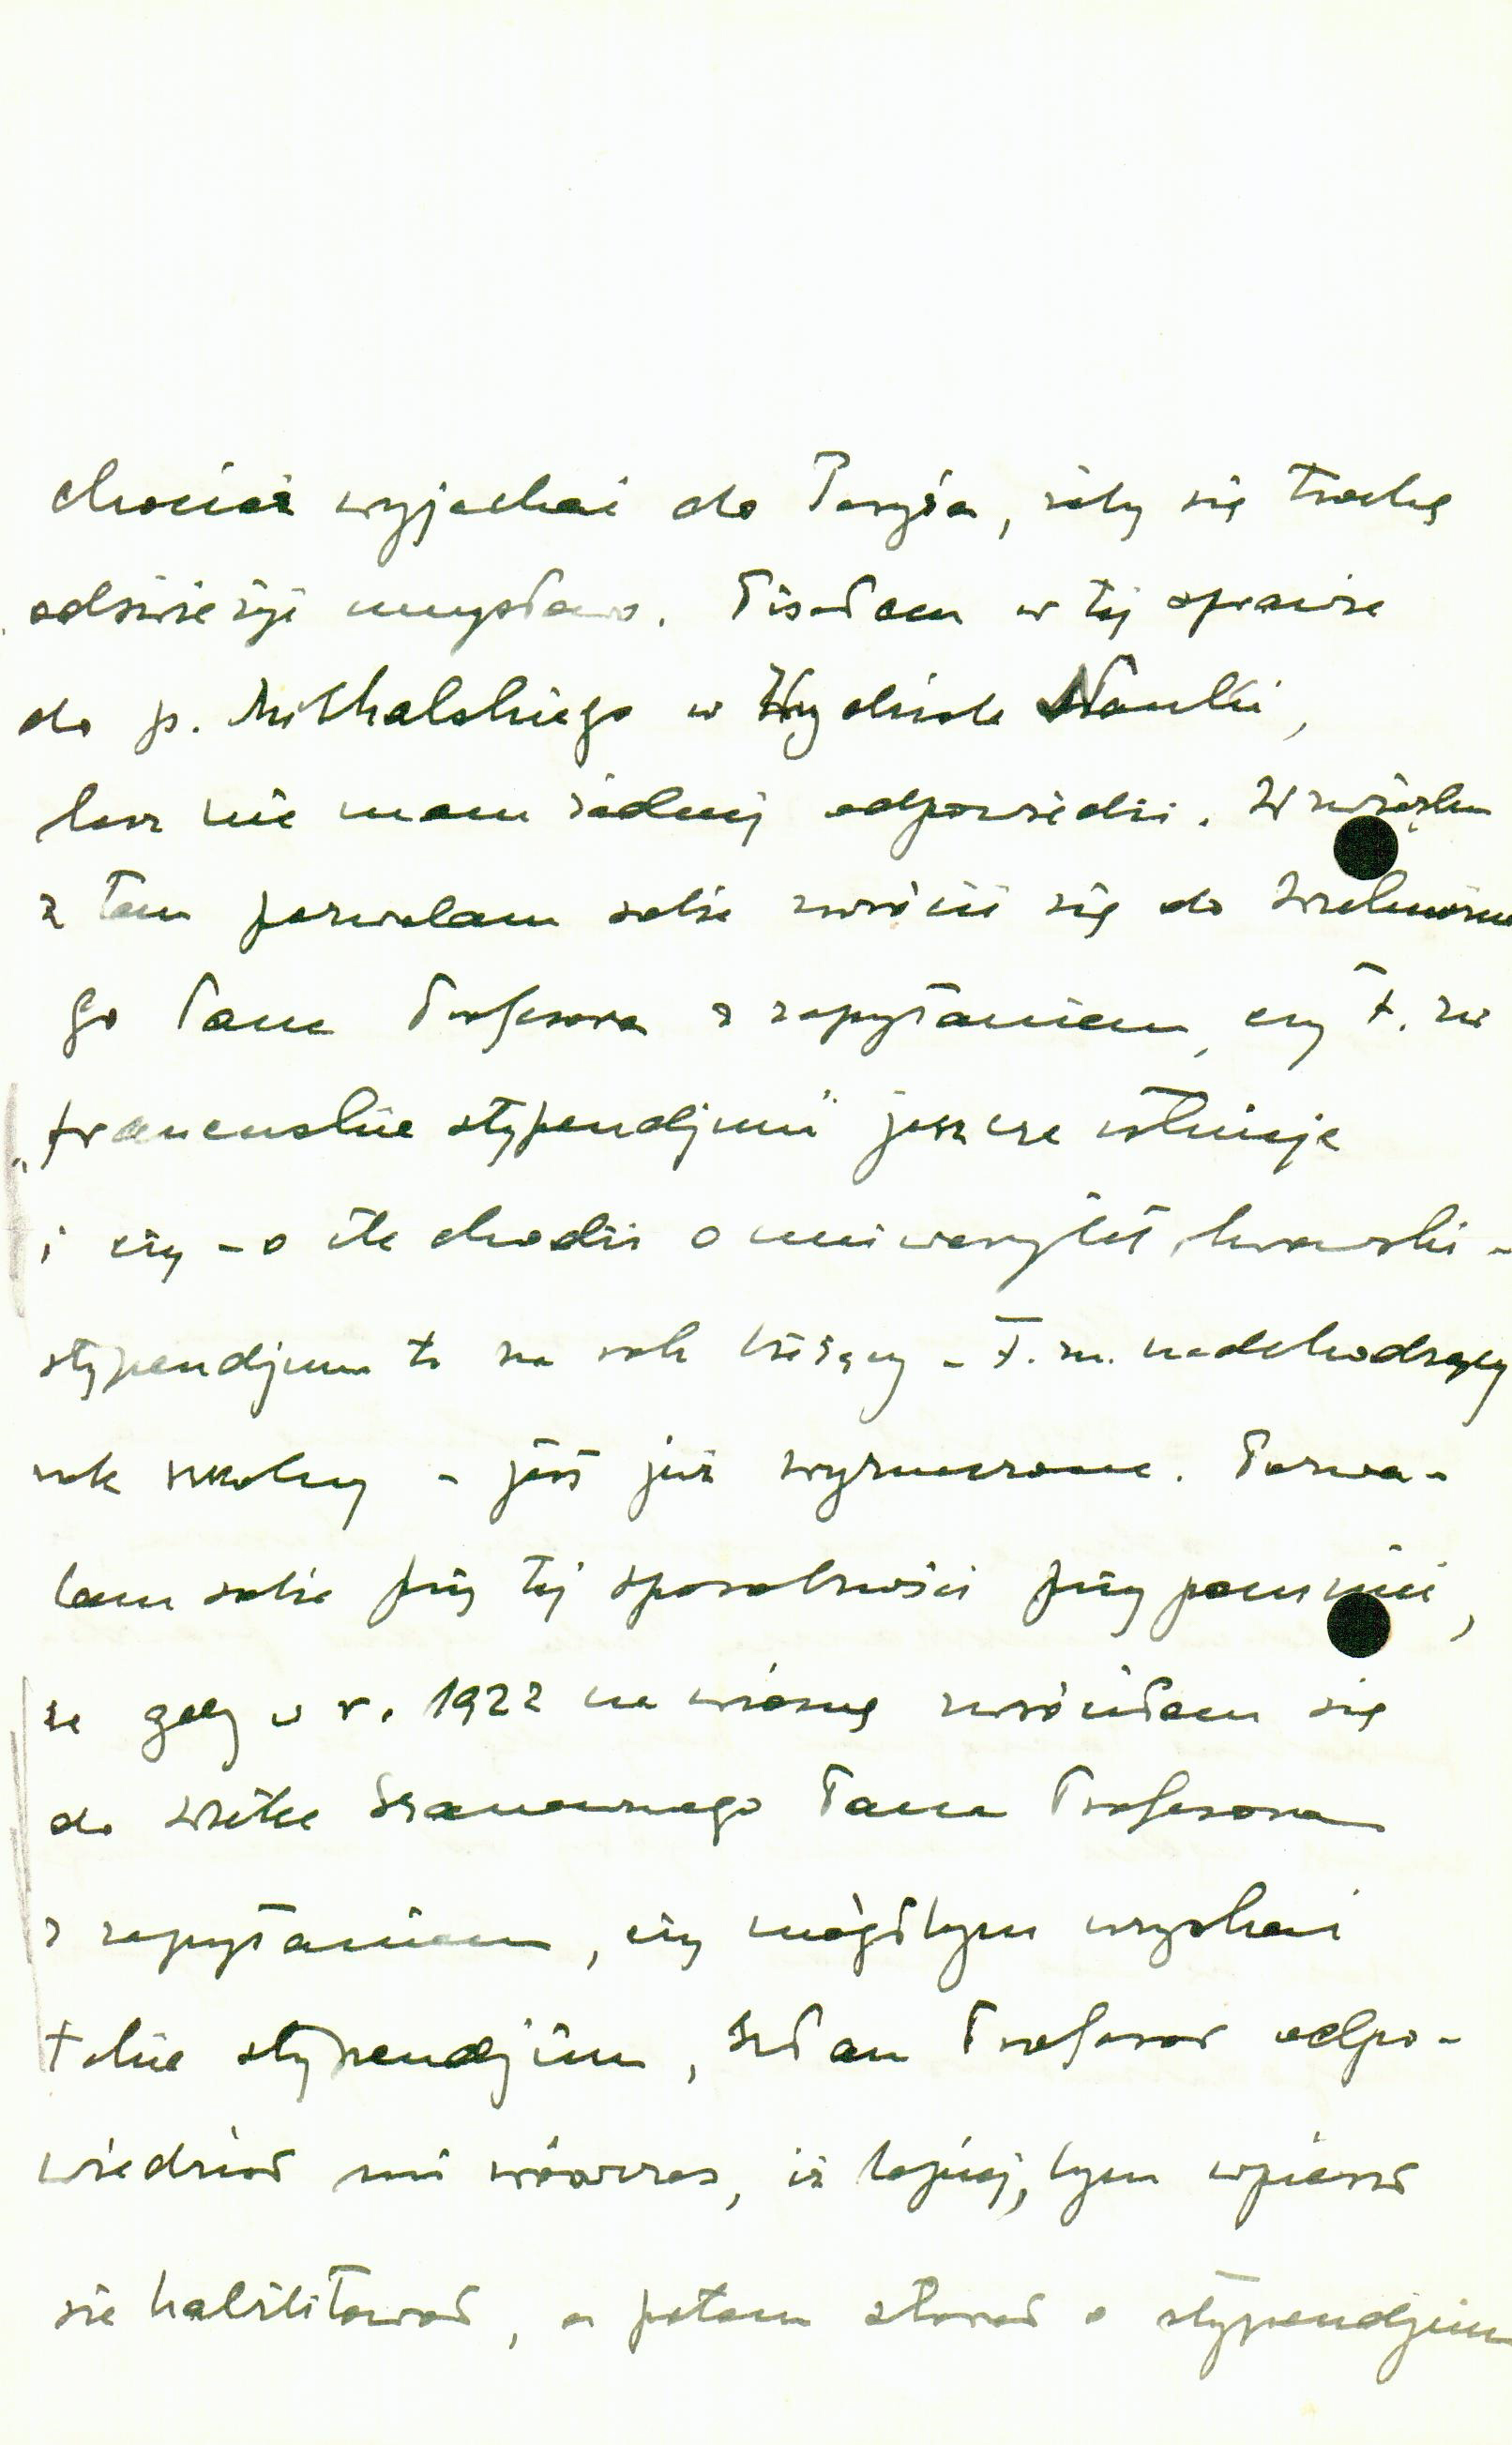 chociaż wyjechać do Paryża, żeby się trochę
odświeżyć umysłowo. Pisałem w tej sprawie
do p. Michalskiego w Wydziale Nauki,
lecz nie mam żadnej odpowiedzi. W związku
z tem pozwalam sobie zwrócić się do Wielmożne
go Pana Profesora z zapytaniem, czy t. zw
„francuskie stypendjum" jeszcze istnieje
i czy – o ile chodzi o uniwersytet lwowski –
stypendjum to na rok bieżący – t. zn. nadchodzący
rok szkolny – jest już wyznaczone. Pozwa-
lam sobie przy tej sposobności przypomnieć,
że gdy w r. 1922 na wiosnę zwróciłem się
do Wielce Szanownego Pana Profesora
z zapytaniem, czy mógłbym uzyskać
takie stypendjum, Pan Profesor odpo-
wiedział mi wówczas, iż lepiej, bym wpierw
się habilitował, a potem starał o stypendjum